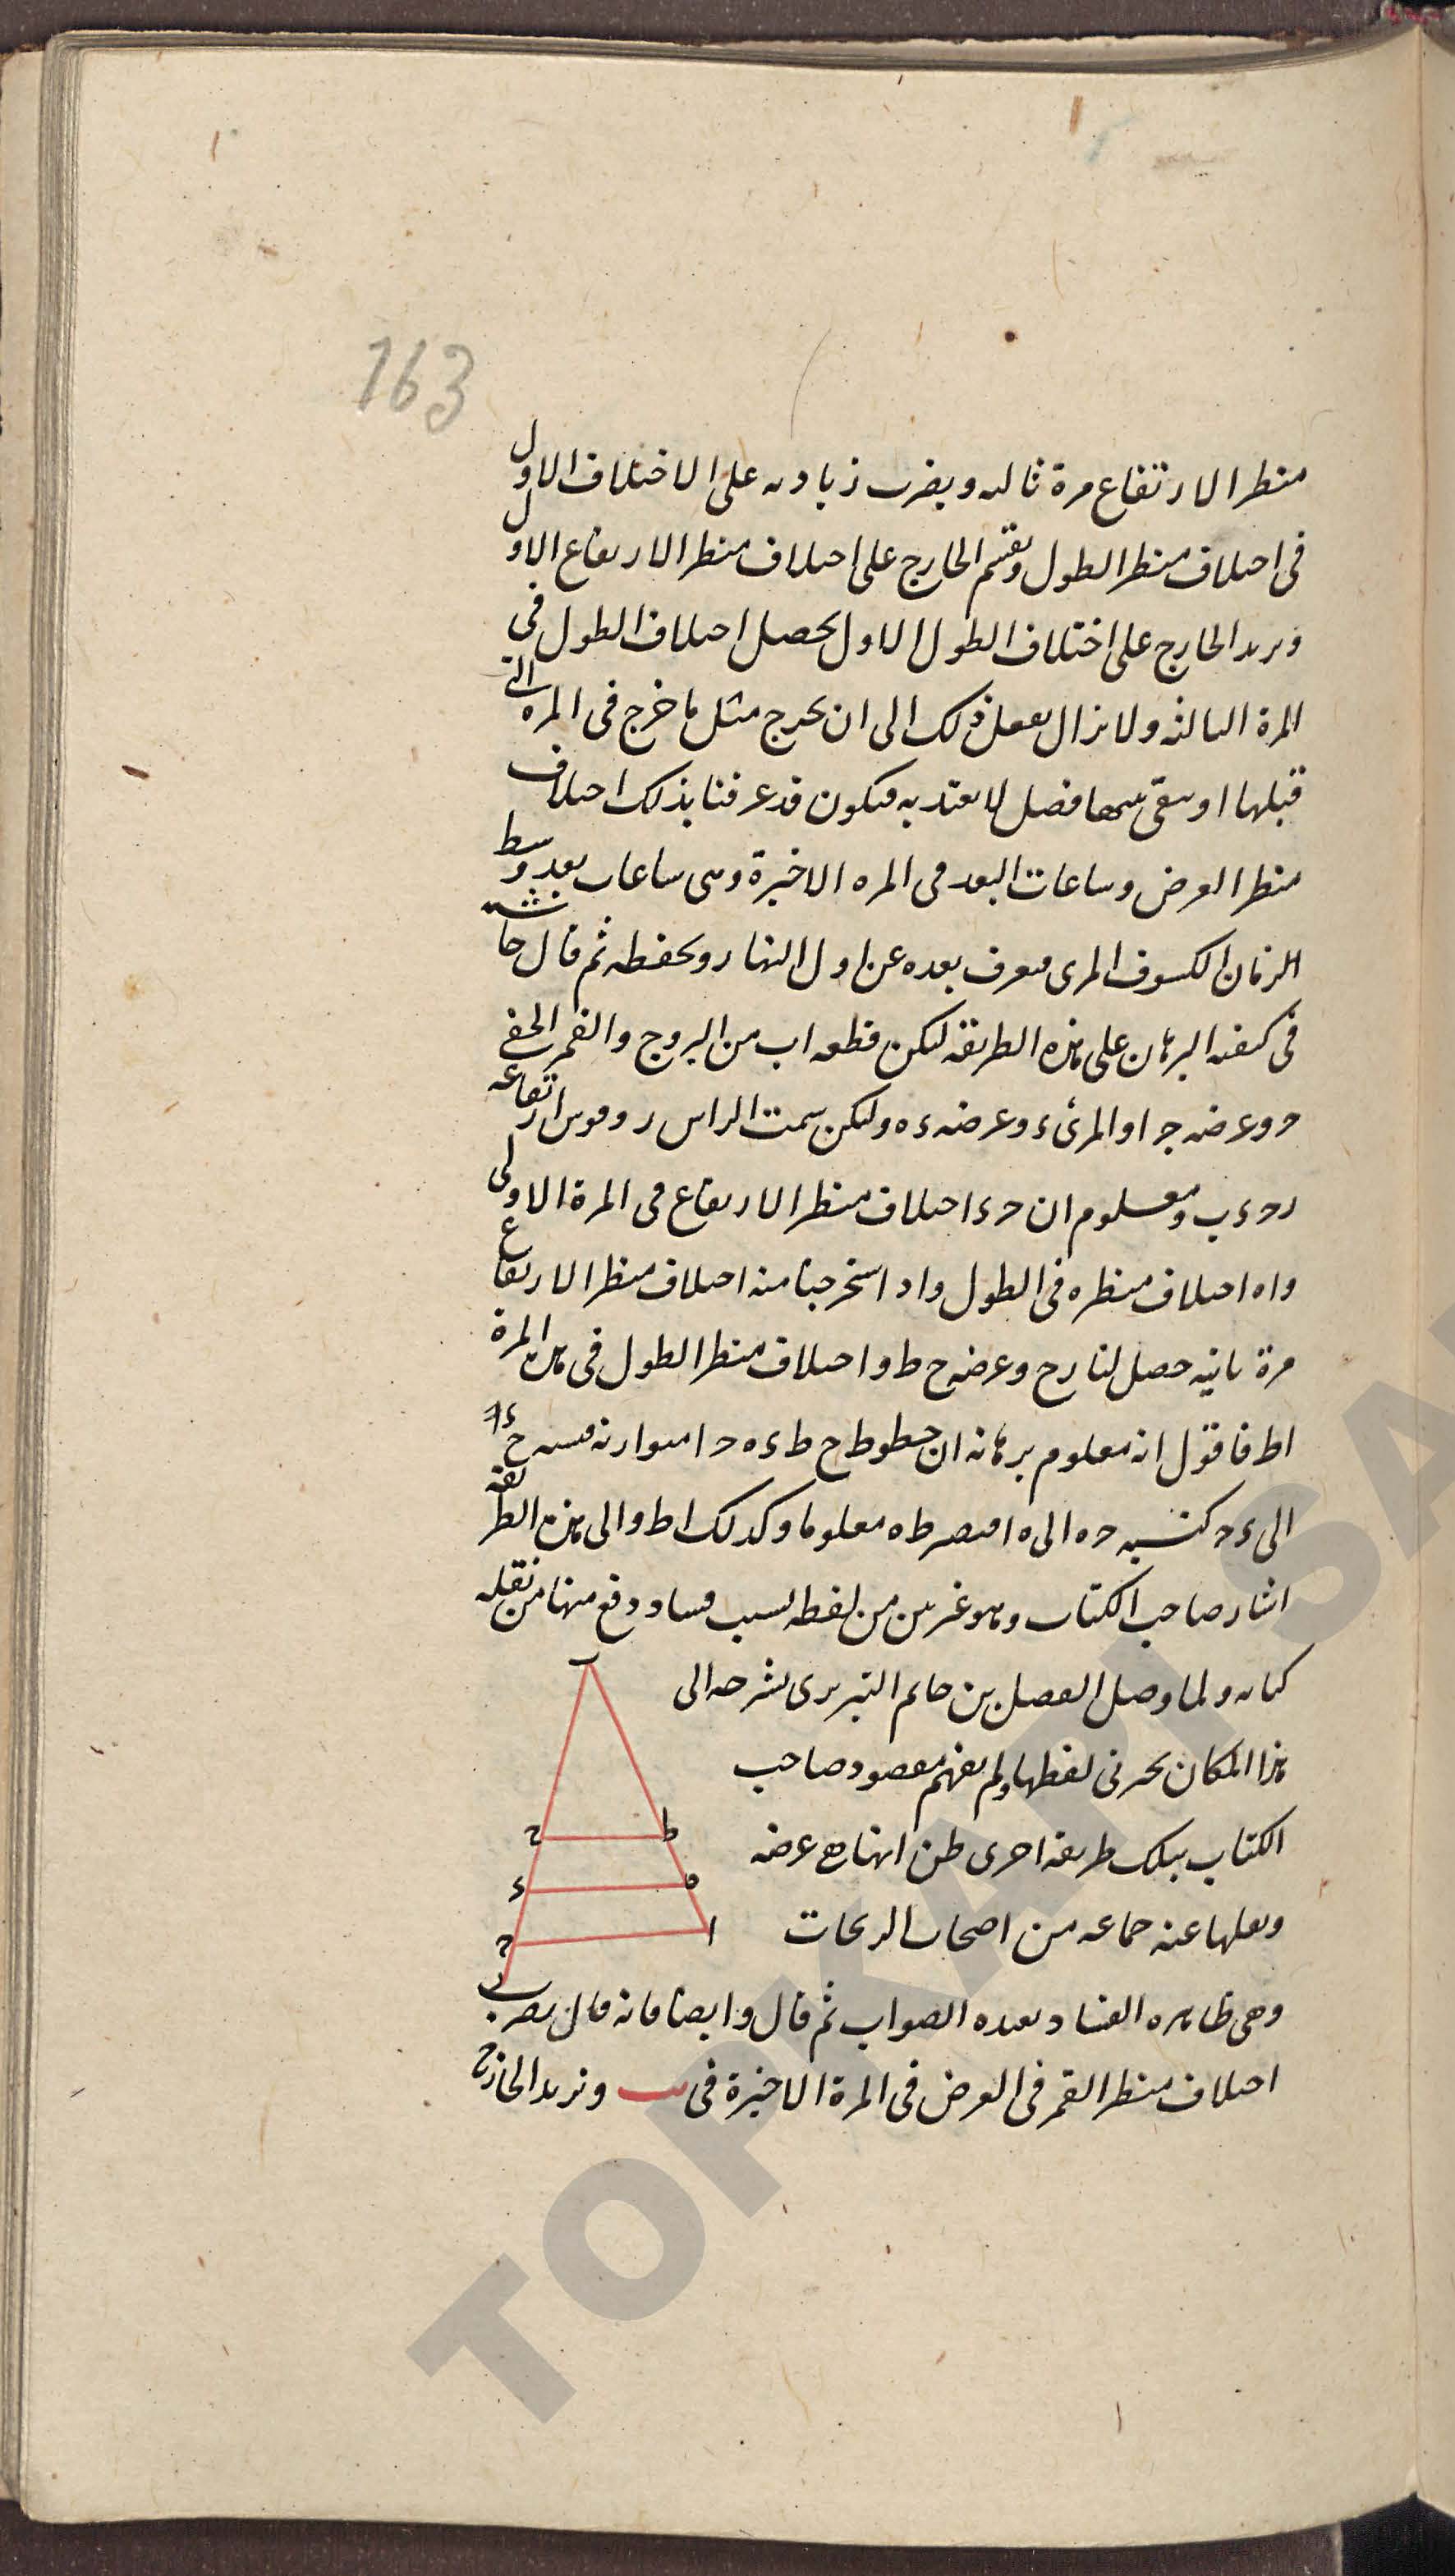 163
منظر الارتفاع مرة ثالثه ويضرب زيادته على الاختلاف الاول
فى احلاف منظر الطول ويقسم الخارج على احلاف منظر الارتفاع الاول
ويريد الخارج على اختلاف الطول الاول يحصل احلاف الطول في
المرة الثالثه ولا يزال يعمل ذلك الى ان يخرج مثل ما خرج في المره التى
قبلها او يبقى بينهما فضل لا يعتد به فيكون قد عرفنا بذلك احلاف
منظر العرض وساعات البعد فى المره الاخيرة وهى ساعات بعد وسط
الزمان الكسوف المرى فيعرف بعده عن اول النهار ويحفظه ثم قال حا
فى كيفيه البرهان على هذه الطريقه ليكن قطعه ا ب من البروج والقمر الخفى
ح وعرضه ح ا والمرئ ء وعرضه ء ه وليكن سمت الراس ر وقوس ارتفاعه
ر ح ء ب ومعلوم ان ح ء احلاف منظر الارتفاع فى المرة الاولى
وا ه احلاف منظره في الطول واذا استخرجنا منه احلاف منظر الارتفاع
مرة ثانيه حصل لنا ر ح وعرضه ح ط واحلاف منظر الطول في هذه المرة
ا ط فاقول انه معلوم برهانه ان خطوط ح ط ء ه ح ا متوازيه فنسبه ح ء
الى ء ح كنسبه ط ه الى ه ا فيصير ط ه معلوما وكذلك ا ط والى هذه الطريقه
اشار صاحب الكتاب وهو غير بين من لفظه لسبب فساد وقع منها من نقله
كتابه ولما وصل الفضل بن حاتم التبريزى بشرحه الى
هذا المكان تحير فى لفظها ولم يفهم مقصود صاحب
الكتاب فسلك طريقه اخرى ظن انها هي غرضه
ونقلها عنه جماعه من اصحاب الزيجات
وهى ظاهره الفساد بعيده الصواب ثم قال وايضا فانه قال يضرب
احلاف منظر القمر فى العرض فى المرة الاخيرة فى ويزيد الخارج
ر
ط ح
ه ء
ا ح
ب